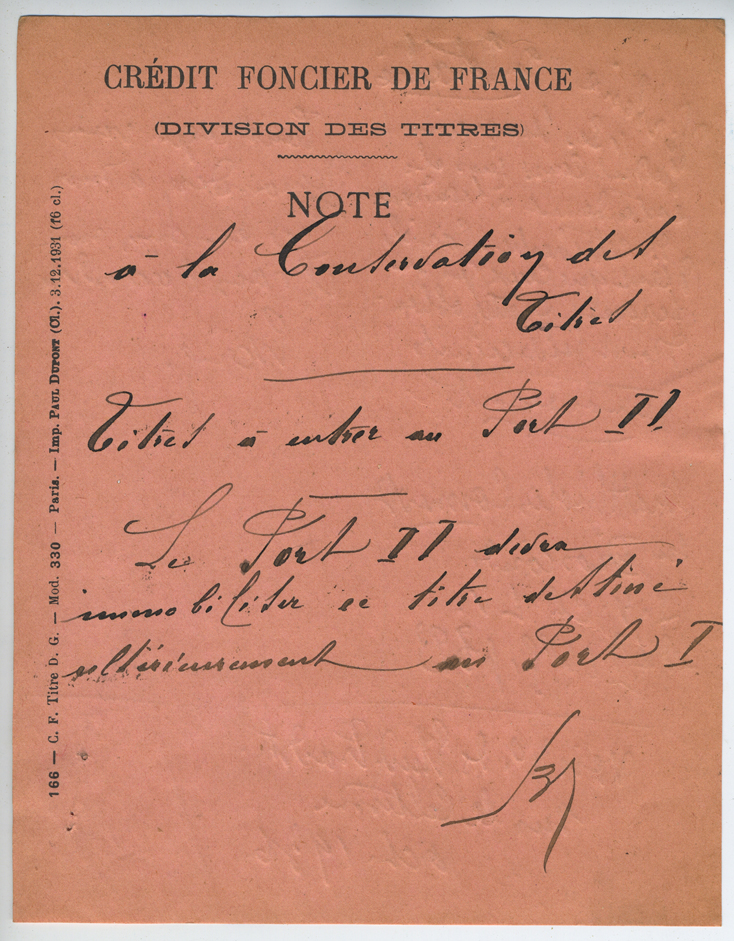 CRÉDIT FONCIER DE FRANCE
(DIVISION DES TITRES)
NOTE
à la Conservation des
Titres
Titres à entrer au Port II
Le Port II devra
immobiliser ce titre destiné
ultérieurement au Port I
166 — C. F. Titre D. G. — Mod. 330 — Paris. — Imp. PAUL DUPONT (Cl.). 3.12.1931 (f6 cl.)